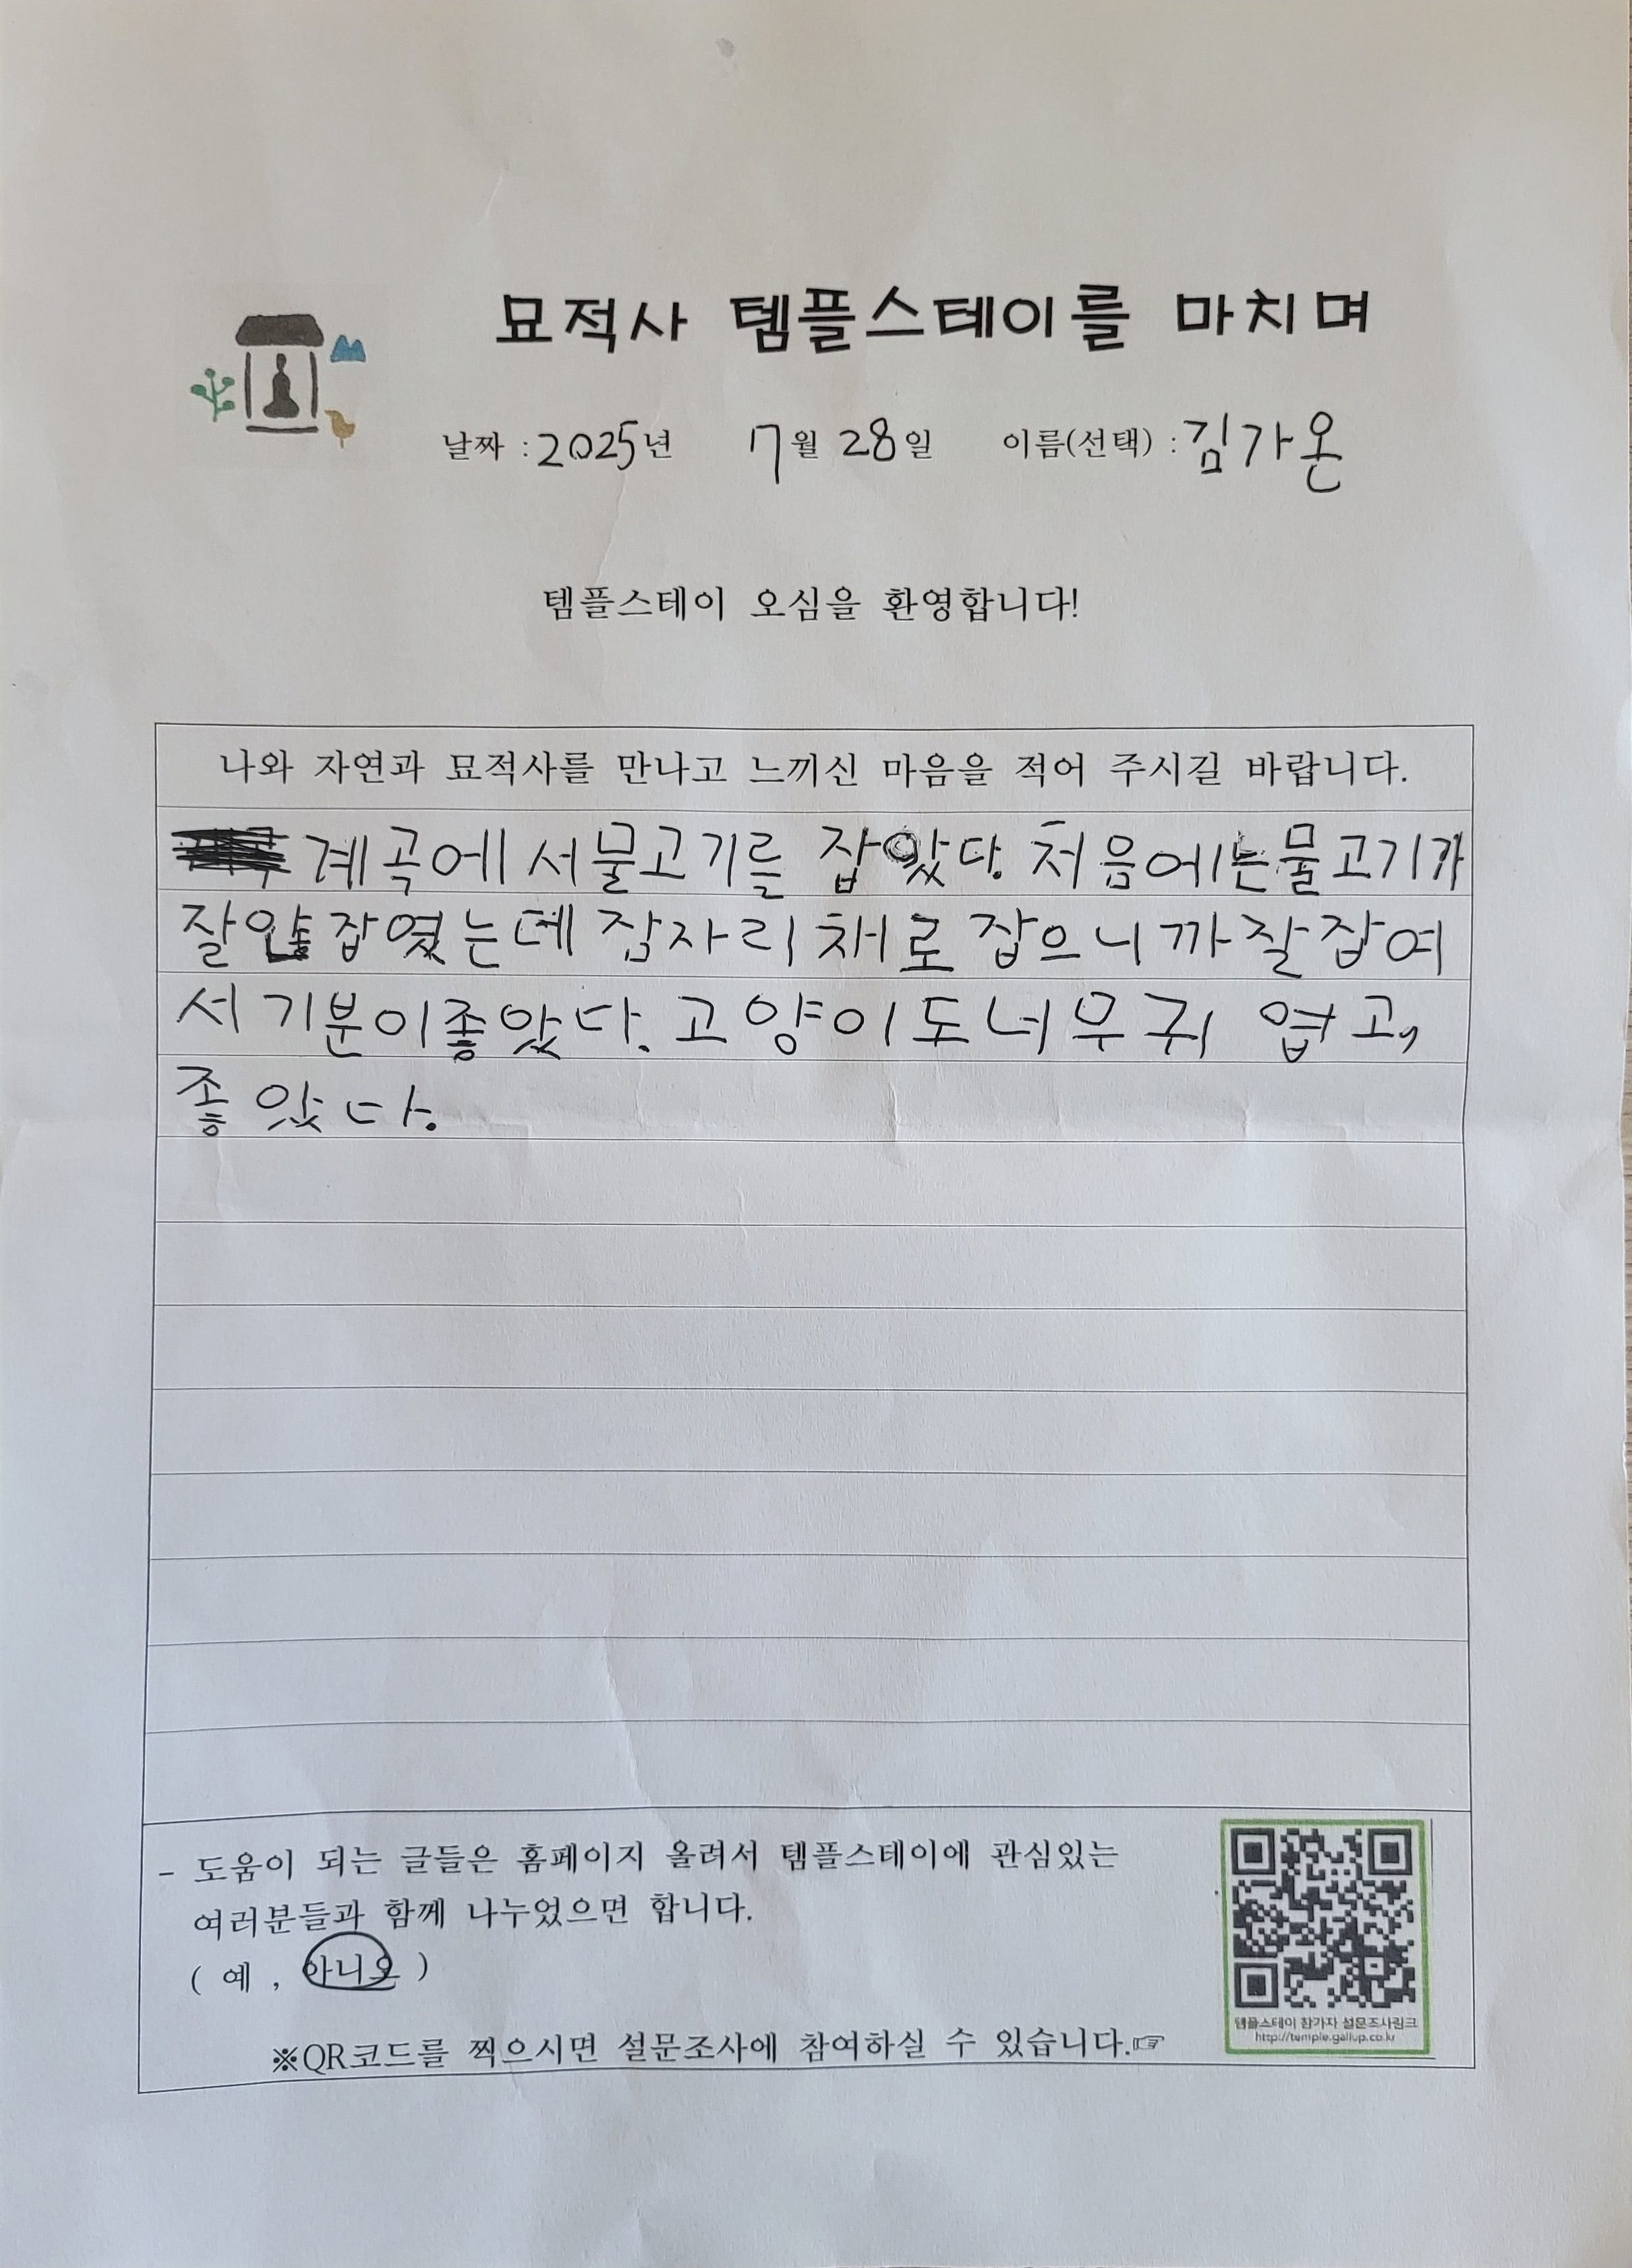 묘적사 템플스테이를 마치며
날짜 : 2025년 7월 28일 이름(선택) : 김가온
템플스테이 오심을 환영합니다!
나와 자연과 묘적사를 만나고 느끼신 마음을 적어 주시길 바랍니다.
계곡에서물고기를 잡았다. 처음에는물고기가
잘 잡엿는데 잠자리채로 잡으니까 잘잡여
서 기분이좋았다. 고양이도너무귀 엽고,
좋았다.
- 도움이 되는 글들은 홈페이지 올려서 템플스테이에 관심있는
여러분들과 함께 나누었으면 합니다.
( 예 , 아니오 )
※QR코드를 찍으시면 설문조사에 참여하실 수 있습니다.☞
템플스테이 참가자 설문조사링크
http://temple.gallup.co.kr